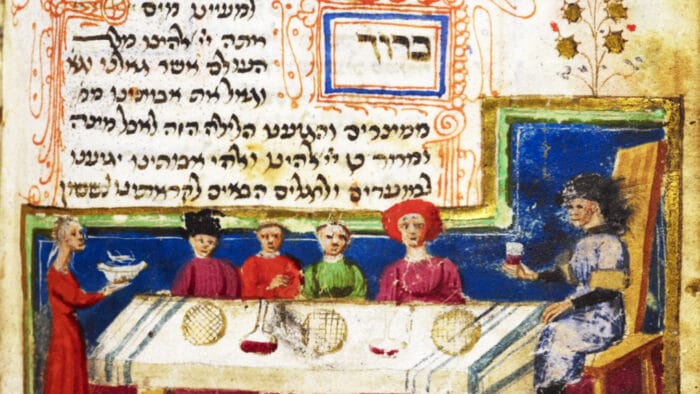 למעיינו מים
ברוך
אתה יי אלהינו מל
העולם אשר גאלנו וגא
וגאל את אבותינו ממ
ממצרים והגיענו הלילה הזה לאכל מצה
ומרור כן יי אלהינו ואלהי אבותינו יגיענו
למועדים ולרגלים הבאים לקראתינו